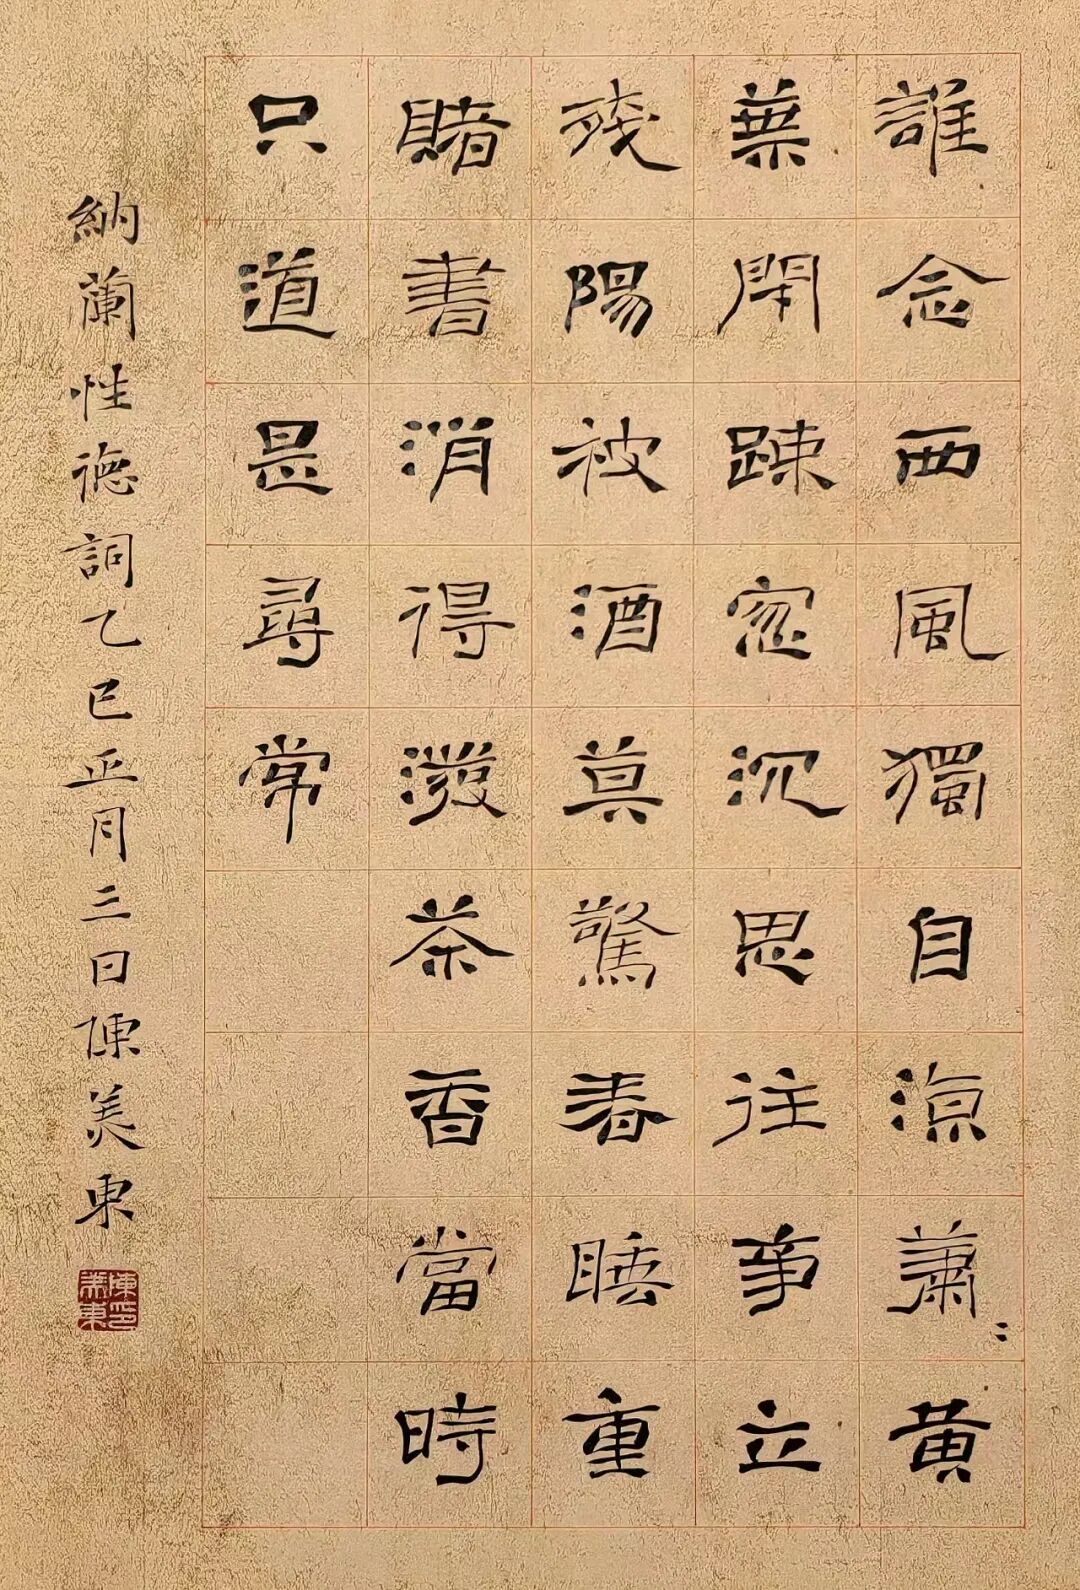 誰念西風獨自涼蕭〻黃
葉閇踈窓沉思往事立
殘陽被酒莫驚春睡重
賭書消得潑茶香當時
只道是尋常
納蘭性德詞乙巳正月三日陳美東
陳美東印